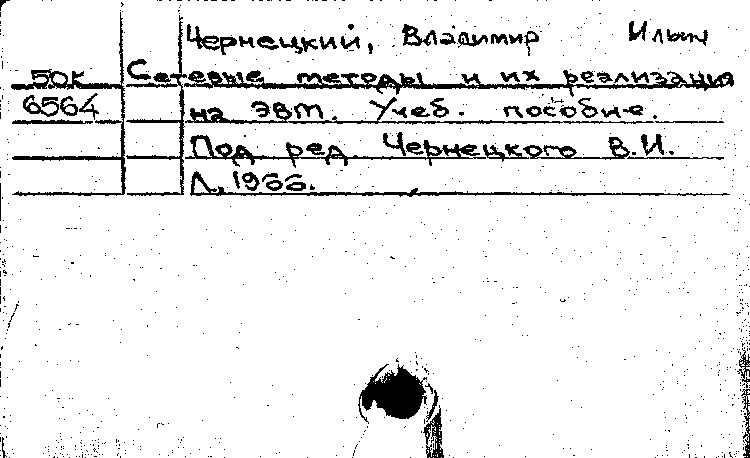 Чернецкий, Владимир Ильич
50к Сетевые методы и их реализация
6564 на ЭВТ. Учеб. пособие.
Под ред. Чернецкого В.И.
Л., 1966.